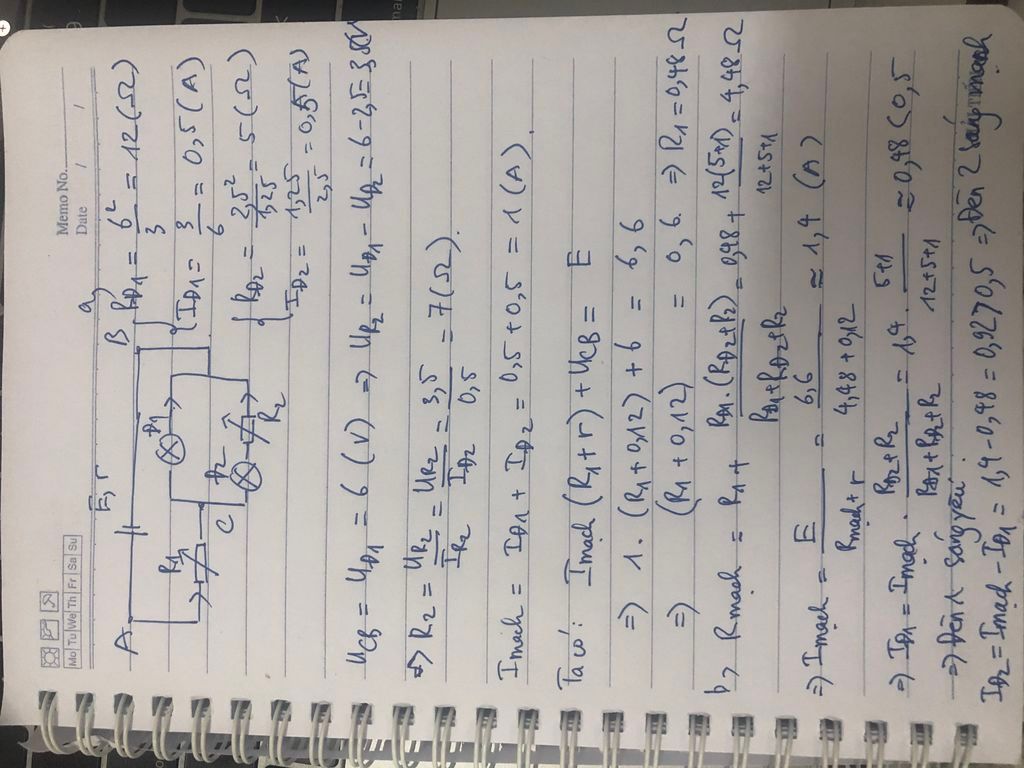 Memo No.
Date / /
Mo Tu We Th Fr Sa Su
E, r
A
B
R1
Đ1
Đ2
C
R2
a,
RĐ1 = 6²/3 = 12 (Ω)
IĐ1 = 3/6 = 0,5 (A)
RĐ2 = 2,5²/1,25 = 5 (Ω)
IĐ2 = 1,25/2,5 = 0,5 (A)
UCB = UĐ1 = 6 (V) => UR2 = UĐ1 - UĐ2 = 6 - 2,5 = 3,5
=> R2 = UR2/IR2 = UR2/IĐ2 = 3,5/0,5 = 7 (Ω).
Imạch = IĐ1 + IĐ2 = 0,5 + 0,5 = 1 (A).
Ta có: Imạch (R1 + r) + UCB = E
=> 1. (R1 + 0,12) + 6 = 6,6
=> (R1 + 0,12) = 0,6. => R1 = 0,48 Ω
b, Rmạch = R1 + RĐ1.(RĐ2+R2)/RĐ1+RĐ2+R2 = 0,48 + 12(5+1)/12+5+1 = 4,48 Ω
=> Imạch = E/Rmạch+r = 6,6/4,48+0,12 ≈ 1,4 (A)
=> IĐ1 = Imạch . RĐ2+R2/RĐ1+RĐ2+R2 = 1,4 . 5+1/12+5+1 ≈ 0,48 < 0,5
=> Đèn 1 sáng yếu
IĐ2 = Imạch - IĐ1 = 1,4 - 0,48 = 0,92 > 0,5 => Đèn 2 sáng mạnh